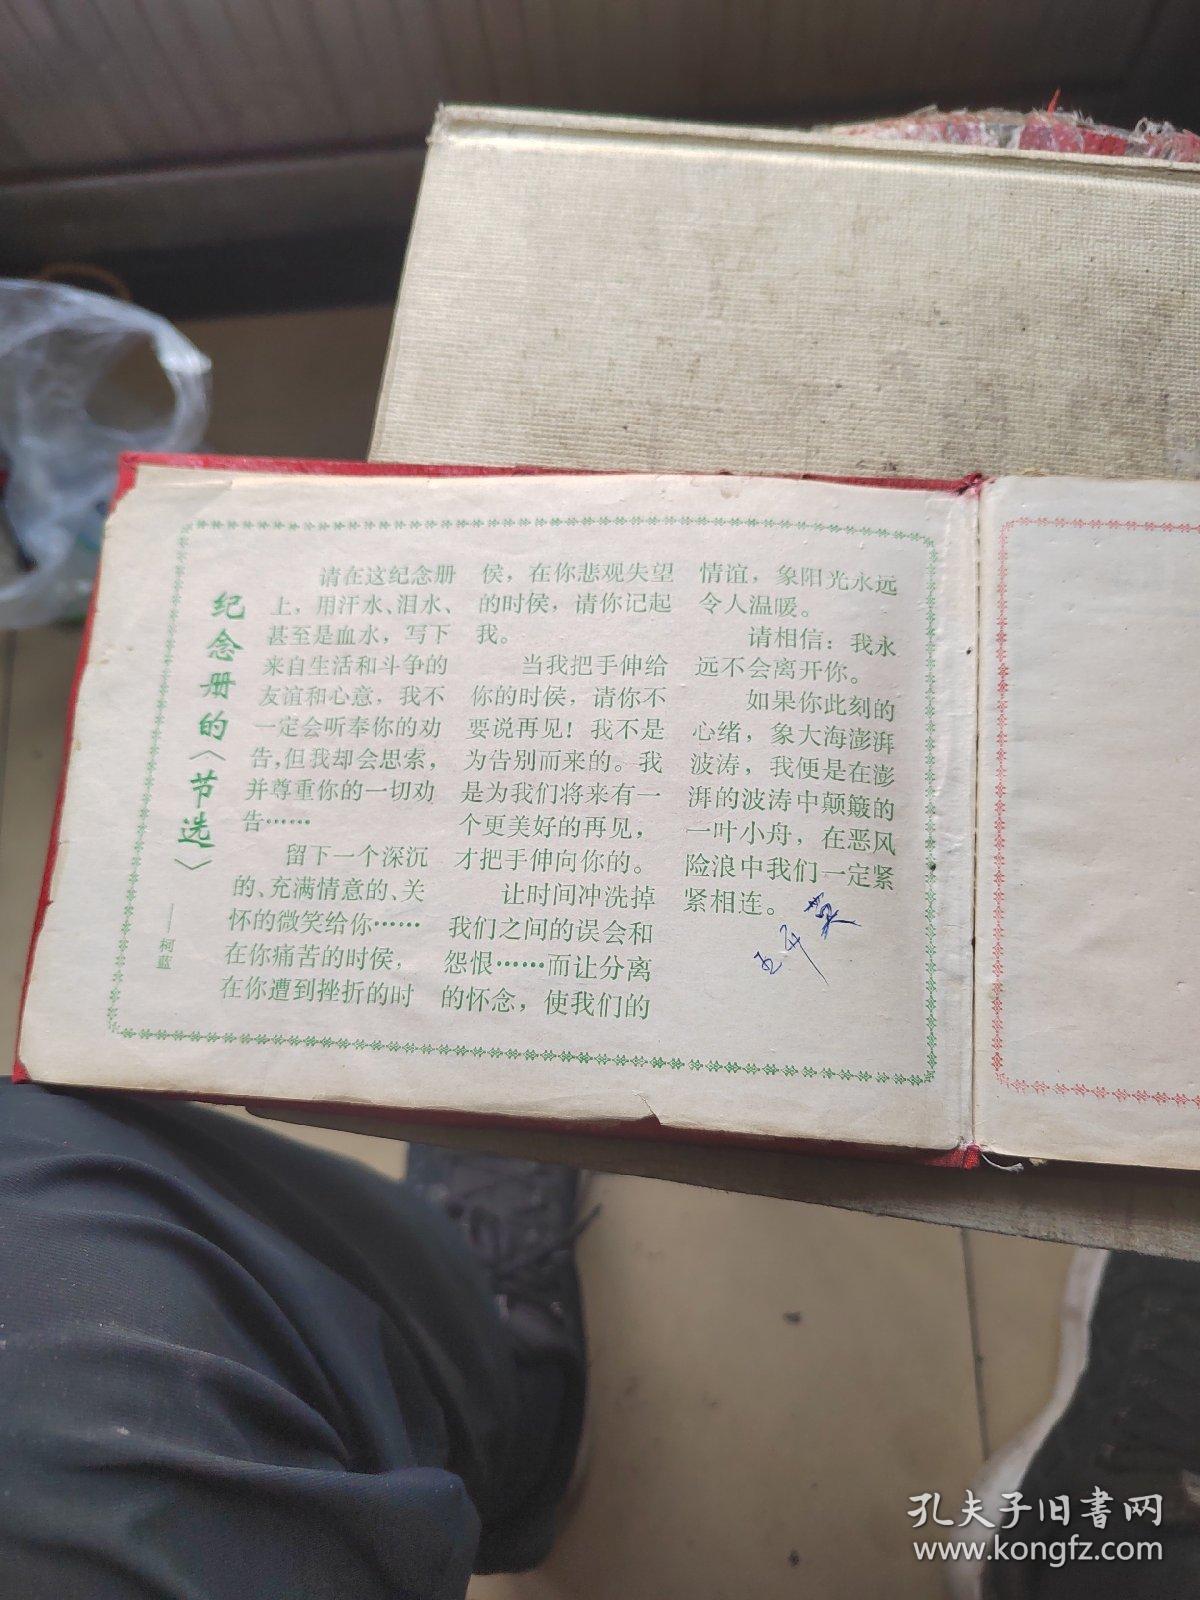 纪念册的〈节选〉
——柯蓝
请在这纪念册
上，用汗水、泪水、
甚至是血水，写下
来自生活和斗争的
友谊和心意，我不
一定会听奉你的劝
告，但我却会思索，
并尊重你的一切劝
告……
留下一个深沉
的、充满情意的、关
怀的微笑给你……
在你痛苦的时侯，
在你遭到挫折的时
侯，在你悲观失望
的时侯，请你记起
我。
当我把手伸给
你的时侯，请你不
要说再见！我不是
为告别而来的。我
是为我们将来有一
个更美好的再见，
才把手伸向你的。
让时间冲洗掉
我们之间的误会和
怨恨……而让分离
的怀念，使我们的
情谊，象阳光永远
令人温暖。
请相信：我永
远不会离开你。
如果你此刻的
心绪，象大海澎湃
波涛，我便是在澎
湃的波涛中颠簸的
一叶小舟，在恶风
险浪中我们一定紧
紧相连。
孔夫子旧书网
www.kongfz.com